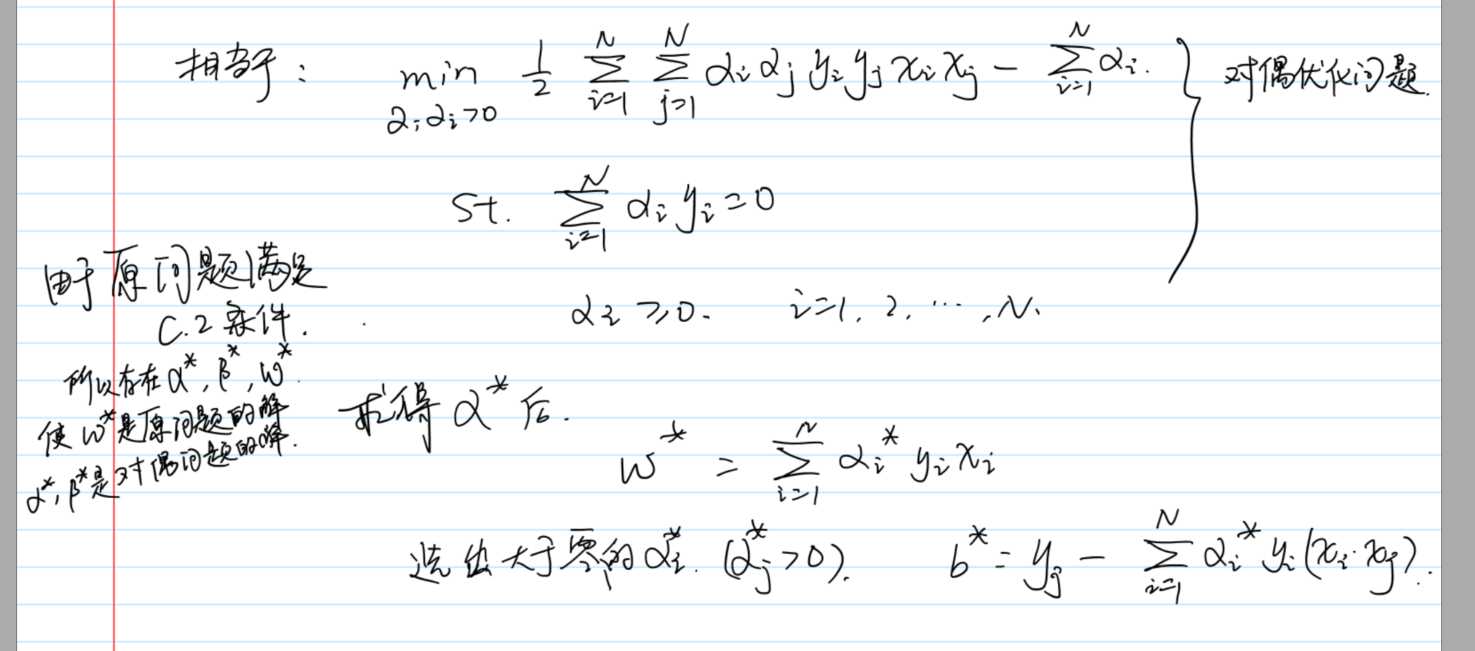 相当于: min 1/2 ∑_{i=1}^{N} ∑_{j=1}^{N} α_i α_j y_i y_j x_i x_j - ∑_{i=1}^{N} α_i. } 对偶优化问题.
α: α_i>0
St. ∑_{i=1}^{N} α_i y_i = 0
α_i ≥ 0. i=1, 2, ⋯, N.
由于原问题满足
C.2 条件.
所以存在 α*, β*, w*.
使 w* 是原问题的解
α*, β* 是对偶问题的解.
求得 α* 后.
w* = ∑_{i=1}^{N} α_i* y_i x_i
选出大于零的 α_i*. (α_j*>0). b* = y_j - ∑_{i=1}^{N} α_i* y_i (x_i·x_j).